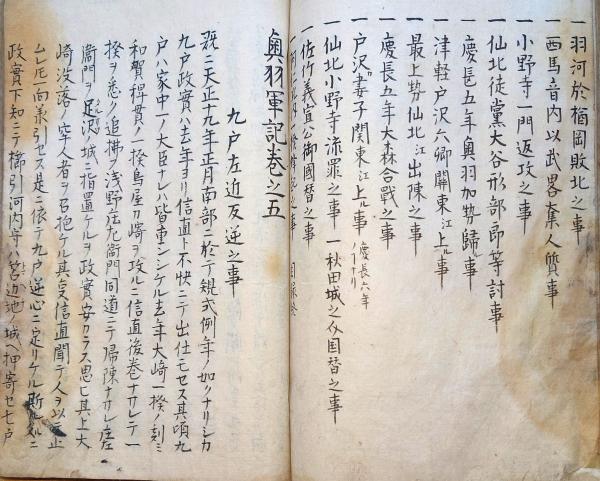 一羽河於楢岡敗北之事
一西馬音内以武畧集人質事
一小野寺一門返攻之事
一仙北徒黨大谷形部卽等討事
一慶長五年奥羽加勢歸ル事
一津軽戸沢六郷關東江上ル事
一最上勢仙北江出陳之事
一慶長五年大森合戰之事
一戸沢妻子関東江上ル事 慶長六年ノコナリ
一仙北小野寺流罪之事 一秋田城之介国替之事
一佐竹義宣公御國替之事
目録終
奥羽軍記卷之五
九戸左近反逆之事
既ニ天正十九年正月南部ニ於テ規式例年ノ如クナリシカ
九戸政實ハ去年ヨリ信直ト不快ニテ出仕モセス其頃九
戸ハ家中一ノ大臣ナレハ皆重シシケル去年大崎一揆ノ刻ミ
和賀稗貫ノ一揆鳥屋カ崎ヲ攻ルニ信直後卷ナサレテ一
揆ヲ悉ク追拂ヲ浅野庄左衛門同道ニテ帰陳ナサレ庄
衞門ヲ足沢城ニ指置ケルヲ政實安カラス思ヒ其上大
崎没落ノ牢人者ヲ召抱ケル其気信直聞テ人ヲ以テ止
ムレ𪜈一向承引セス是ニ依テ九戸逆心ニ定リケル斯ル処ニ
政實下知ニテ櫛引河内守ハ苫辺地ノ城ヘ押寄セ七戸